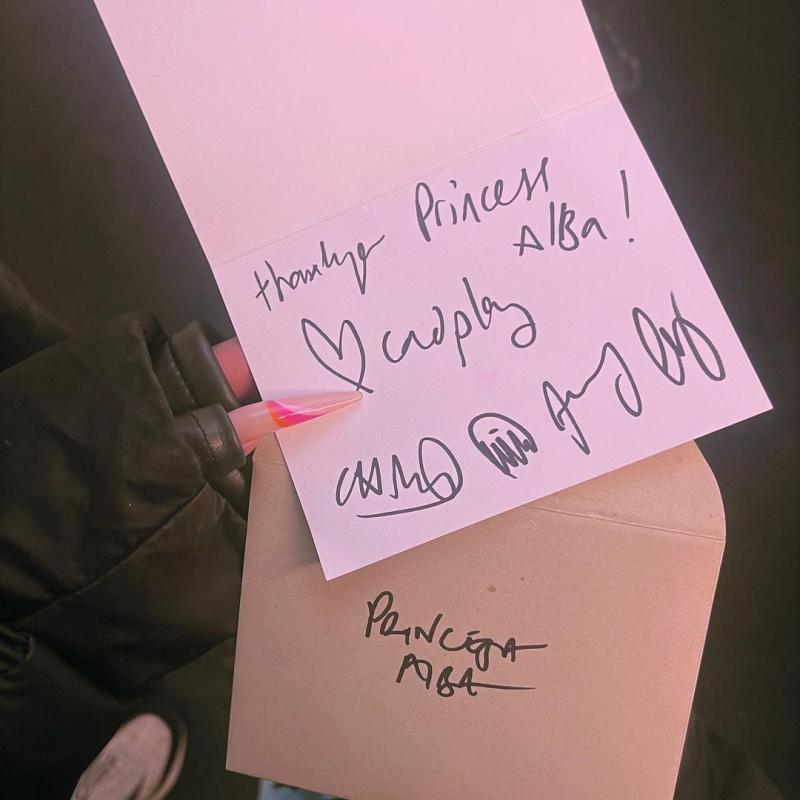 thankyou Princess
Alba!
coldplay
PRINCESA
ALBA